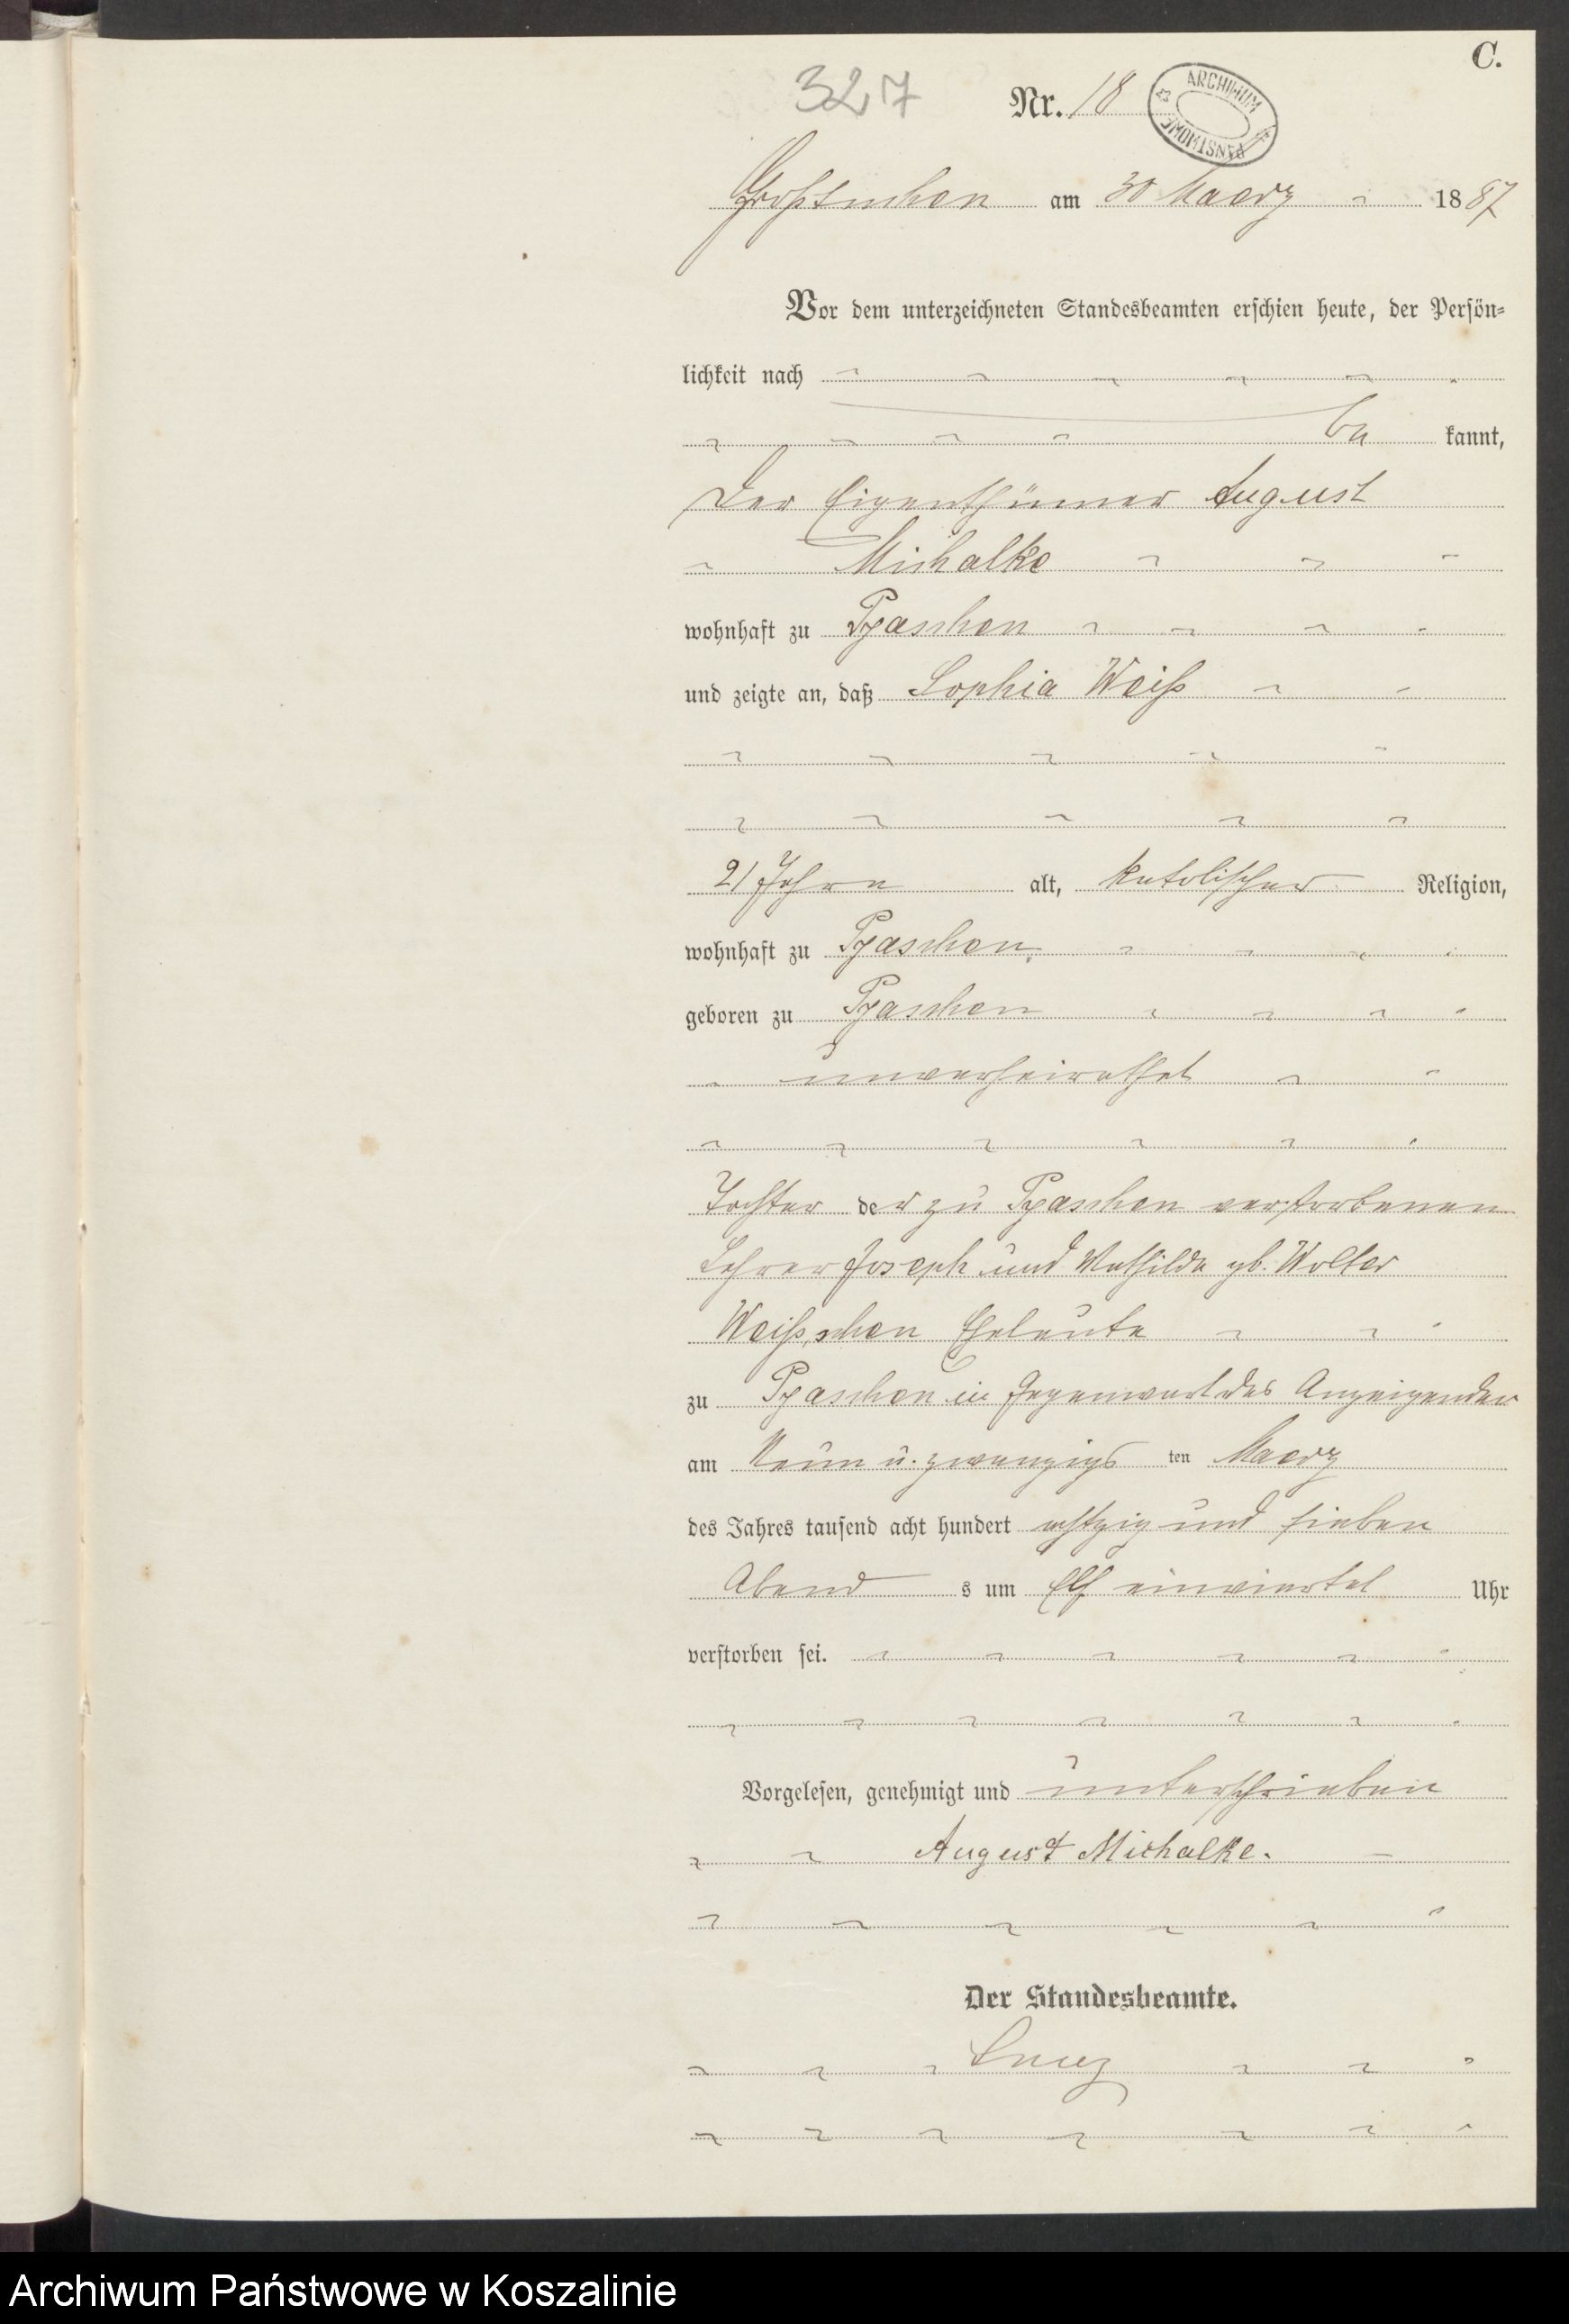 C.
327
Nr. 18
ARCHIWUM
PAŃSTWOWE
Großtuchen am 30 Maerz 1887
Vor dem unterzeichneten Standesbeamten erschien heute, der Persön-
lichkeit nach
be kannt,
Der Eigenthümer August
Michalke
wohnhaft zu Pyaschen
und zeigte an, daß Sophia Weiß
21 Jahre alt, katolischer Religion,
wohnhaft zu Pyaschen
geboren zu Pyaschen
unverheirathet
Tochter der zu Pyaschen verstorbenen
Lehrer Joseph und Mathilde gb. Wolter
Weiß,schen Eheleute
zu Pyaschen in Gegenwart des Anzeigenden
am Neun u. zwanzigs ten Maerz
des Jahres tausend acht hundert achtzig und sieben
Abend s um Elf einviertel Uhr
verstorben sei.
Vorgelesen, genehmigt und unterschrieben
August Michalke.
Der Standesbeamte.
Archiwum Państwowe w Koszalinie